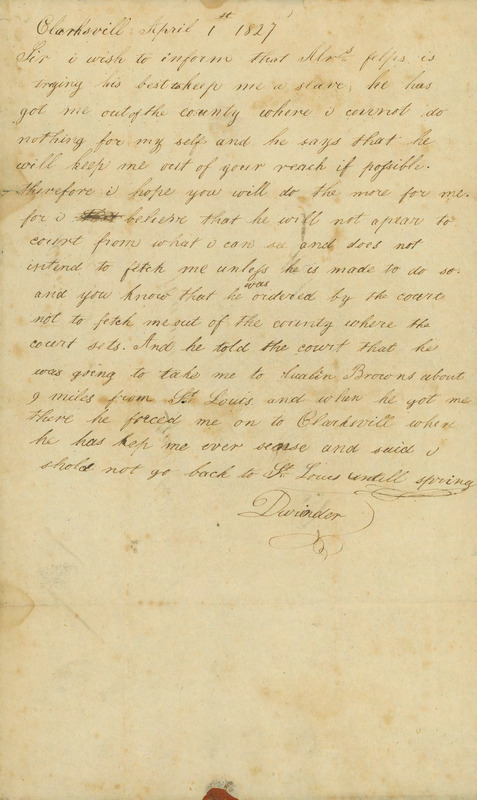 Clarksvill April 1st 1827
Sir i wish to inform that Mrs. felps is
trying his best to keep me a slave, he has
got me out of the county where i connot do
nothing for my self and he says that he
will keep me out of your reach if possible.
therefore i hope you will do the more for me.
for i believe that he will not apear to
court from what i can se and does not
intend to fetch me unless he is made to do so.
and you know that he was ordered by the court
not to fetch me out of the county where the
court sets. And he told the court that he
was going to take me to Browns about
9 miles from St Louis and when he got me
there he forced me on to Clarksvill wher
he has kep me ever sense and said i
shold not go back to St. Louis untill spring
D winder